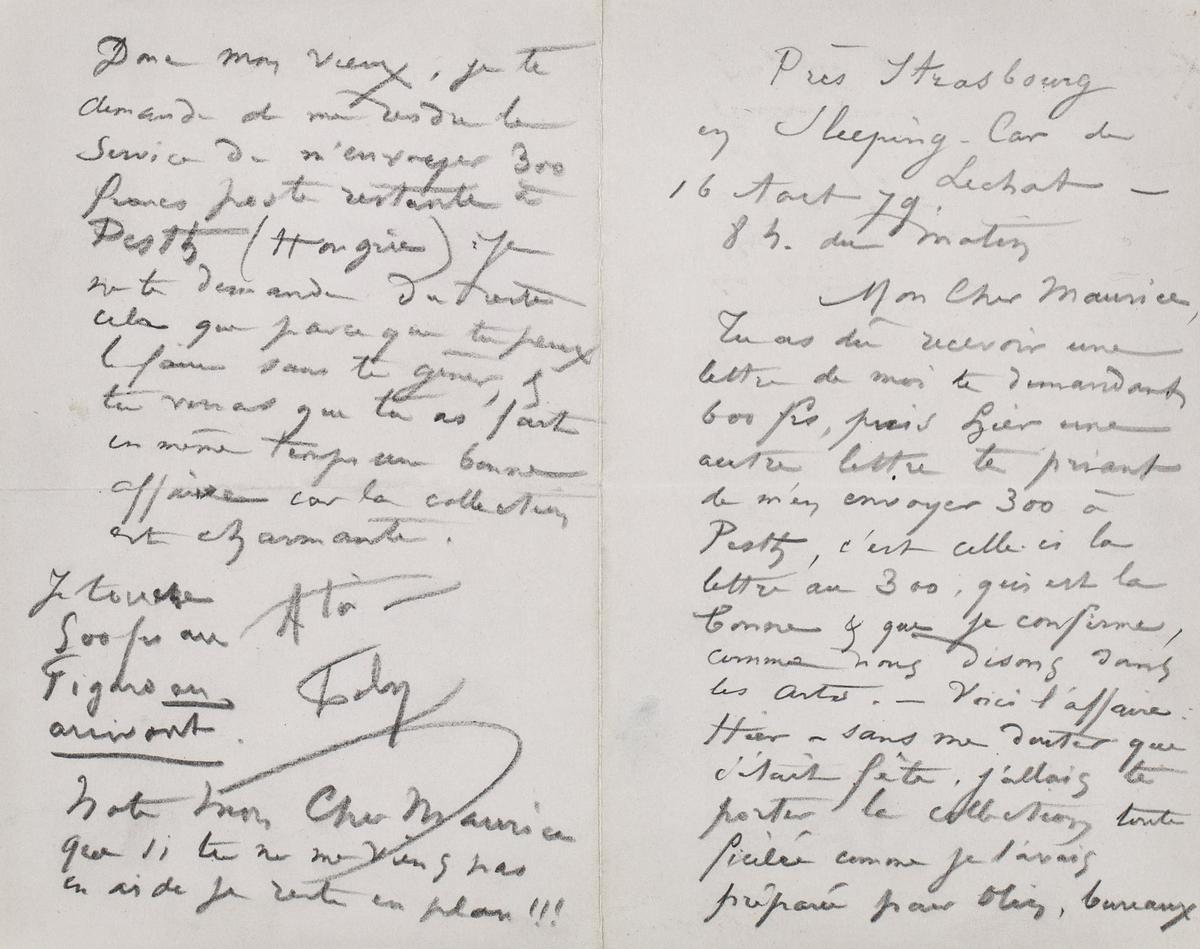 Près Strasbourg
en Sleeping-Car de
Lechat —
16 Aout 79.
8 h. du matin
Mon Cher Maurice,
Tu as dû recevoir une
lettre de moi te demandant
600 frs, puis hier une
autre lettre te priant
de m'en envoyer 300 à
Pesth, c'est celle-ci la
lettre au 300, qui est la
bonne & que je confirme,
comme nous disons dans
les arts. — Voici l'affaire:
Hier — sans me douter que
c'était fête, j'allais te
porter la collection toute
ficelée comme je l'avais
préparée pour, bureaux
Donc mon vieux, je te
demande de me rendre le
service de m'envoyer 300
francs poste restante à
Pesth (Hongrie). Je
ne te demande du reste
cela que parce que tu peux
le faire sans te gêner, &
tu verras que tu as fait
en même temps une bonne
affaire car la collection
est charmante.
A toi —
Je touche
500 frs au
Figaro en
arrivant.
Note mon Cher Maurice
que si tu ne me viens pas
en aide je reste en plan!!!